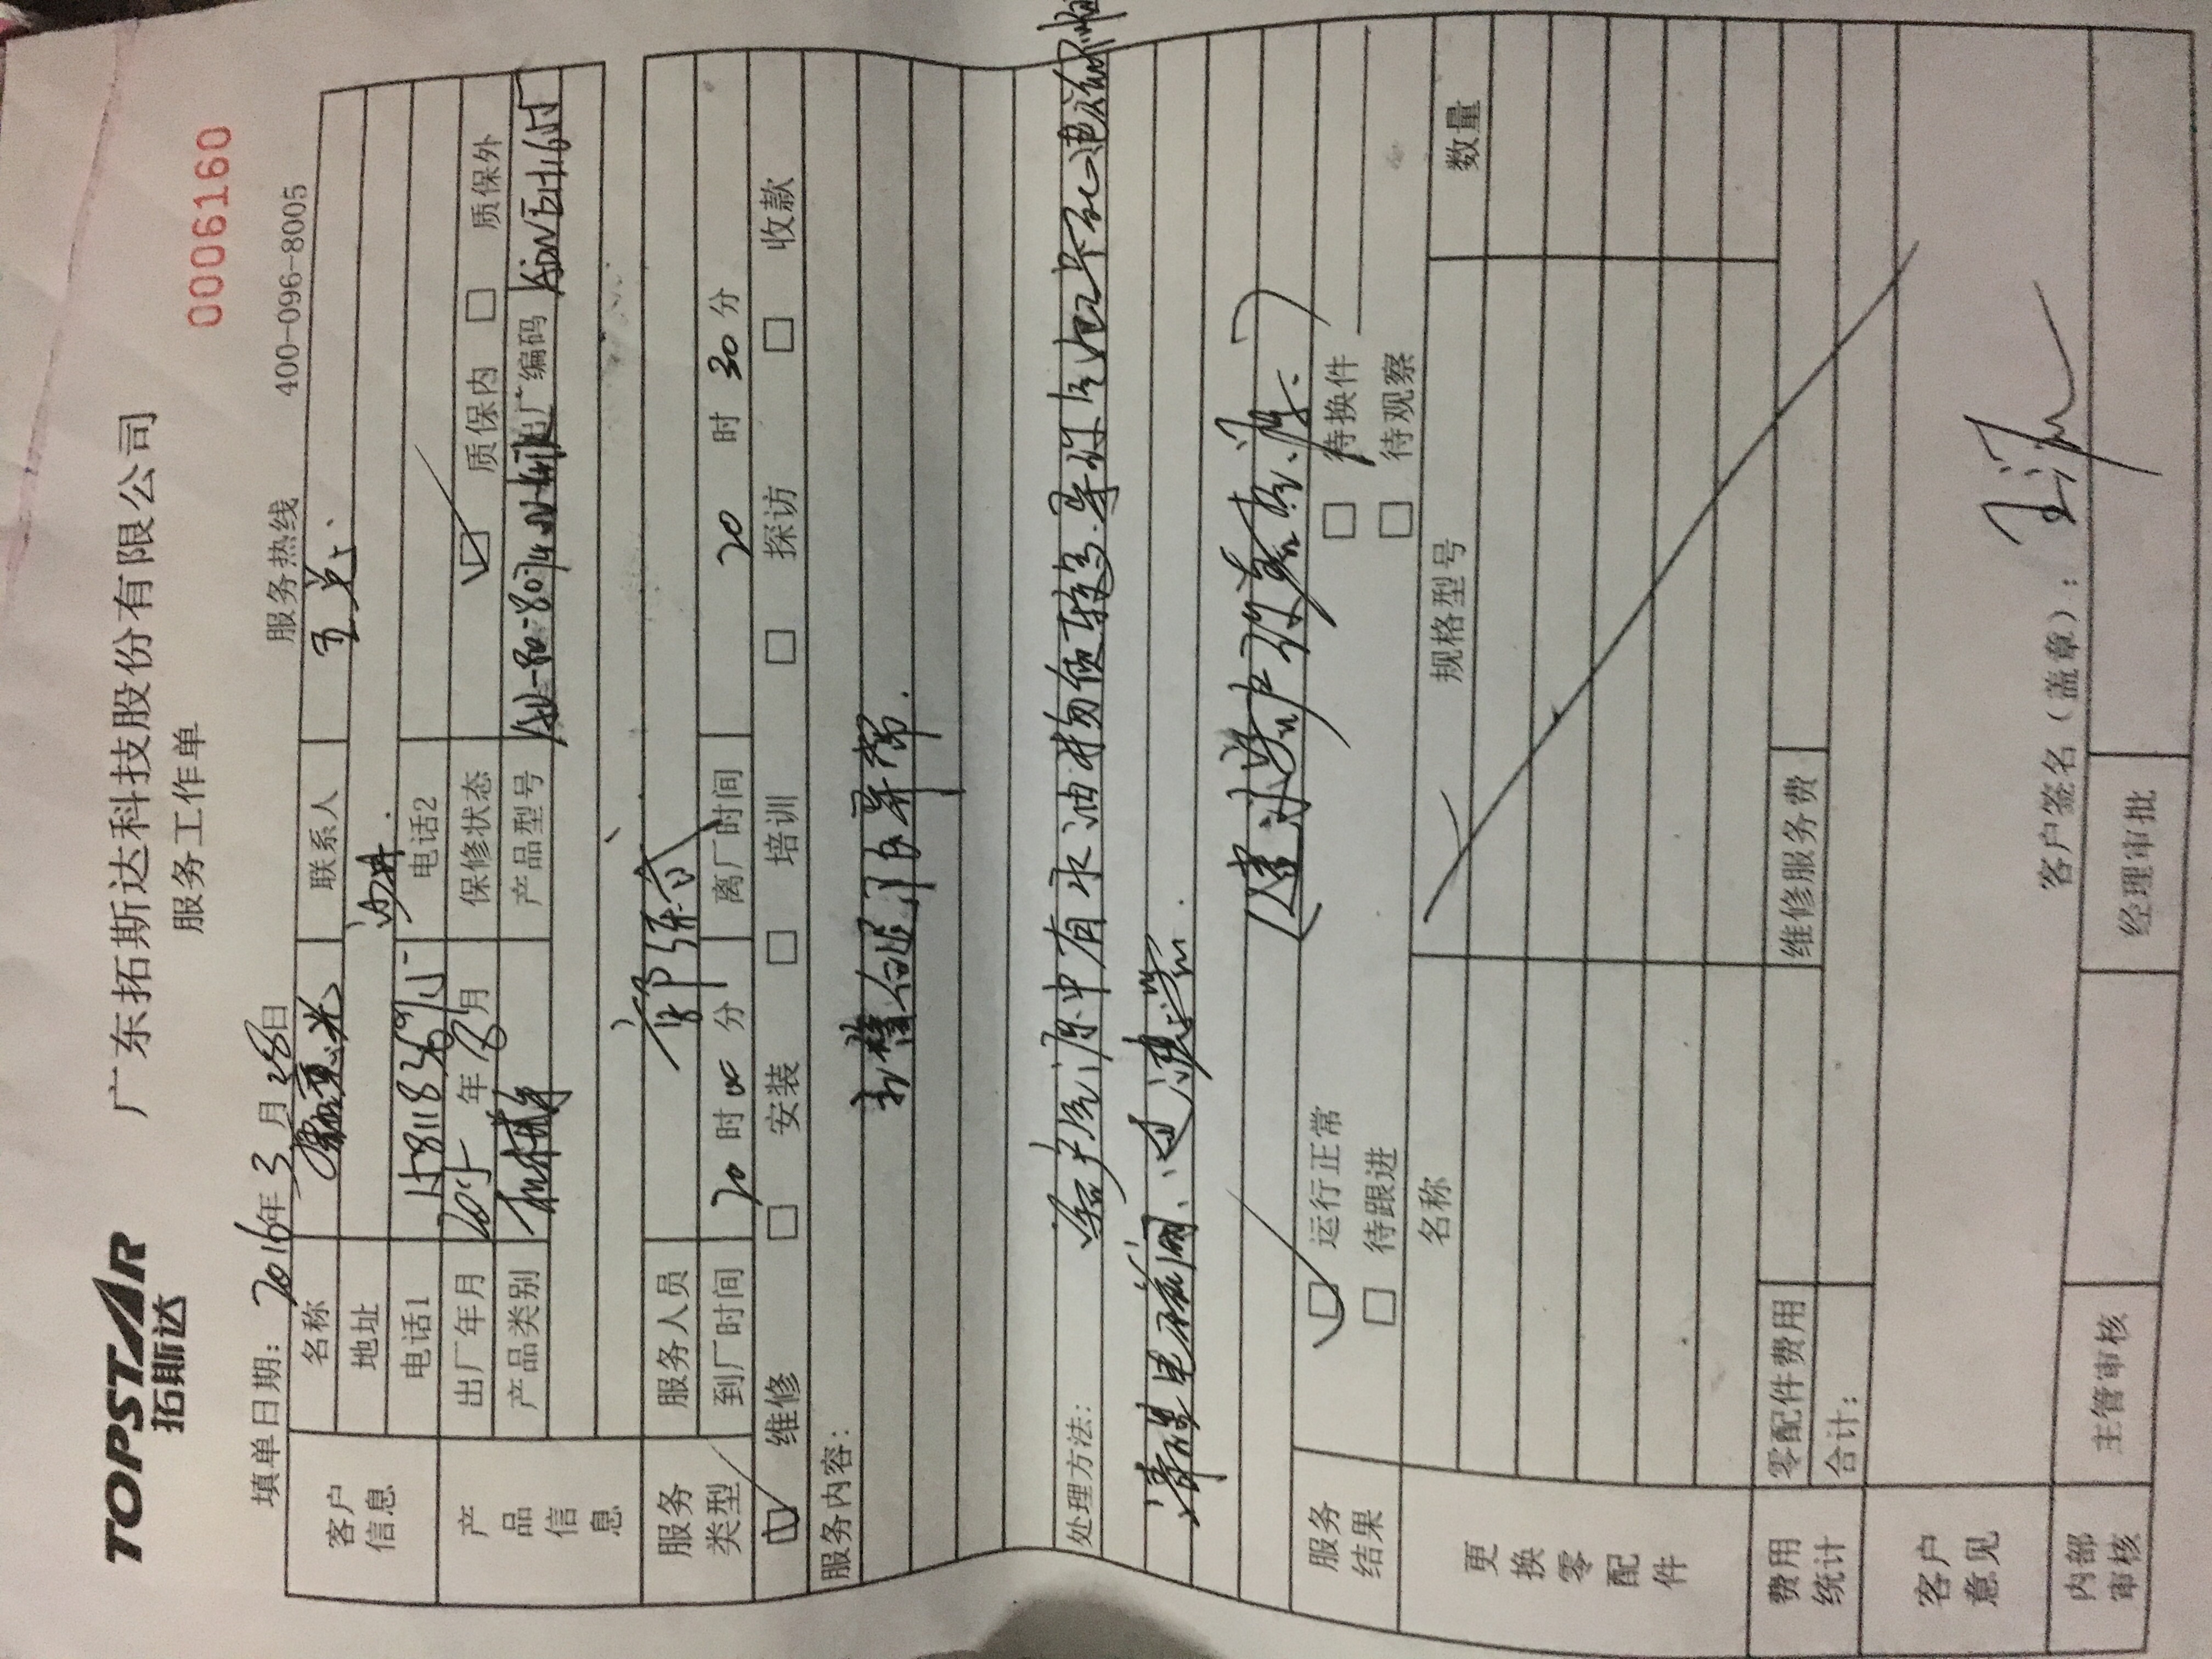 TOPSTAR
拓斯达
广东拓斯达科技股份有限公司
服务工作单
0006160
填单日期: 2016年3月28日
服务热线 400-096-8005
客户信息
名称 鑫惠米 联系人 王总.
地址 沙井.
电话1 15811836915 电话2
产品信息
出厂年月 2015年8月 保修状态 ☑ 质保内 □ 质保外
产品类别 机械手 产品型号 出厂编码
服务类型
服务人员
到厂时间 20时00分 离厂时间 20时30分
☑ 维修 □ 安装 □ 培训 □ 探访 □ 收款
服务内容:
异常.
处理方法: 客户气源中有水油物质较多.导致
清洗电磁阀、过滤
(建议客户
服务结果
☑ 运行正常 □ 待换件
□ 待跟进 □ 待观察
更换零配件
名称 规格型号 数量
费用统计
零配件费用 维修服务费
合计:
客户意见
客户签名（盖章）:
内部审核
主管审核 经理审批